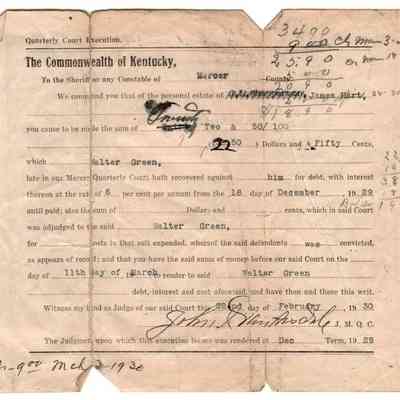 3400
Quarterly Court Execution.
9.00 Ch Mar 3-
25.90
The Commonwealth of Kentucky,
To the Sheriff or any Constable of Mercer County:
We command you that of the personal estate of James Hart,
you cause to be made the sum of Twenty Two & 50/100
22 50 ) Dollars and Fifty Cents,
which Walter Green,
late in our Mercer Quarterly Court hath recovered against him for debt, with interest
thereon at the rate of 6 per cent per annum from the 18 day of December, 1929
until paid; also the sum of Dollars and cents, which in said Court
was adjudged to the said Walter Green,
for costs in that suit expended, whereof the said defendants was convicted,
as appears of record; and that you have the said sums of money before our said Court on the
day of 11th day of March to render to said Walter Green
debt, interest and cost aforesaid, and have then and there this writ.
Witness my hand as Judge of our said Court this 22nd day of February 1930
J. M. Q. C.
The Judgment, upon which this execution issues was rendered at Dec Term, 1929
9.00 Mch 3 1930